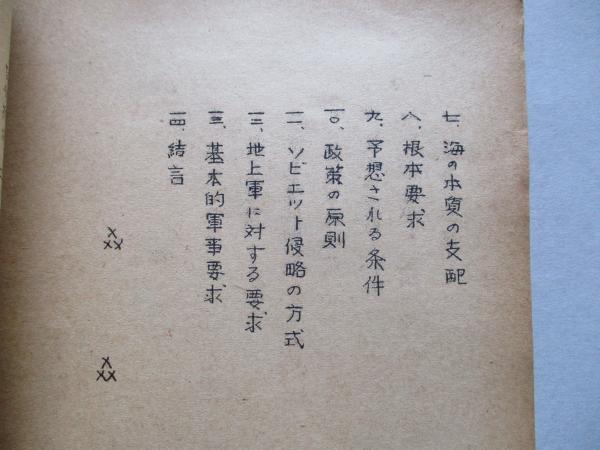 七、海の本質の支配
八、根本要求
九、予想される条件
一〇、政策の原則
一一、ソビエット侵略の方式
一二、地上軍に対する要求
一三、基本的軍事要求
一四、結言
×××
×××